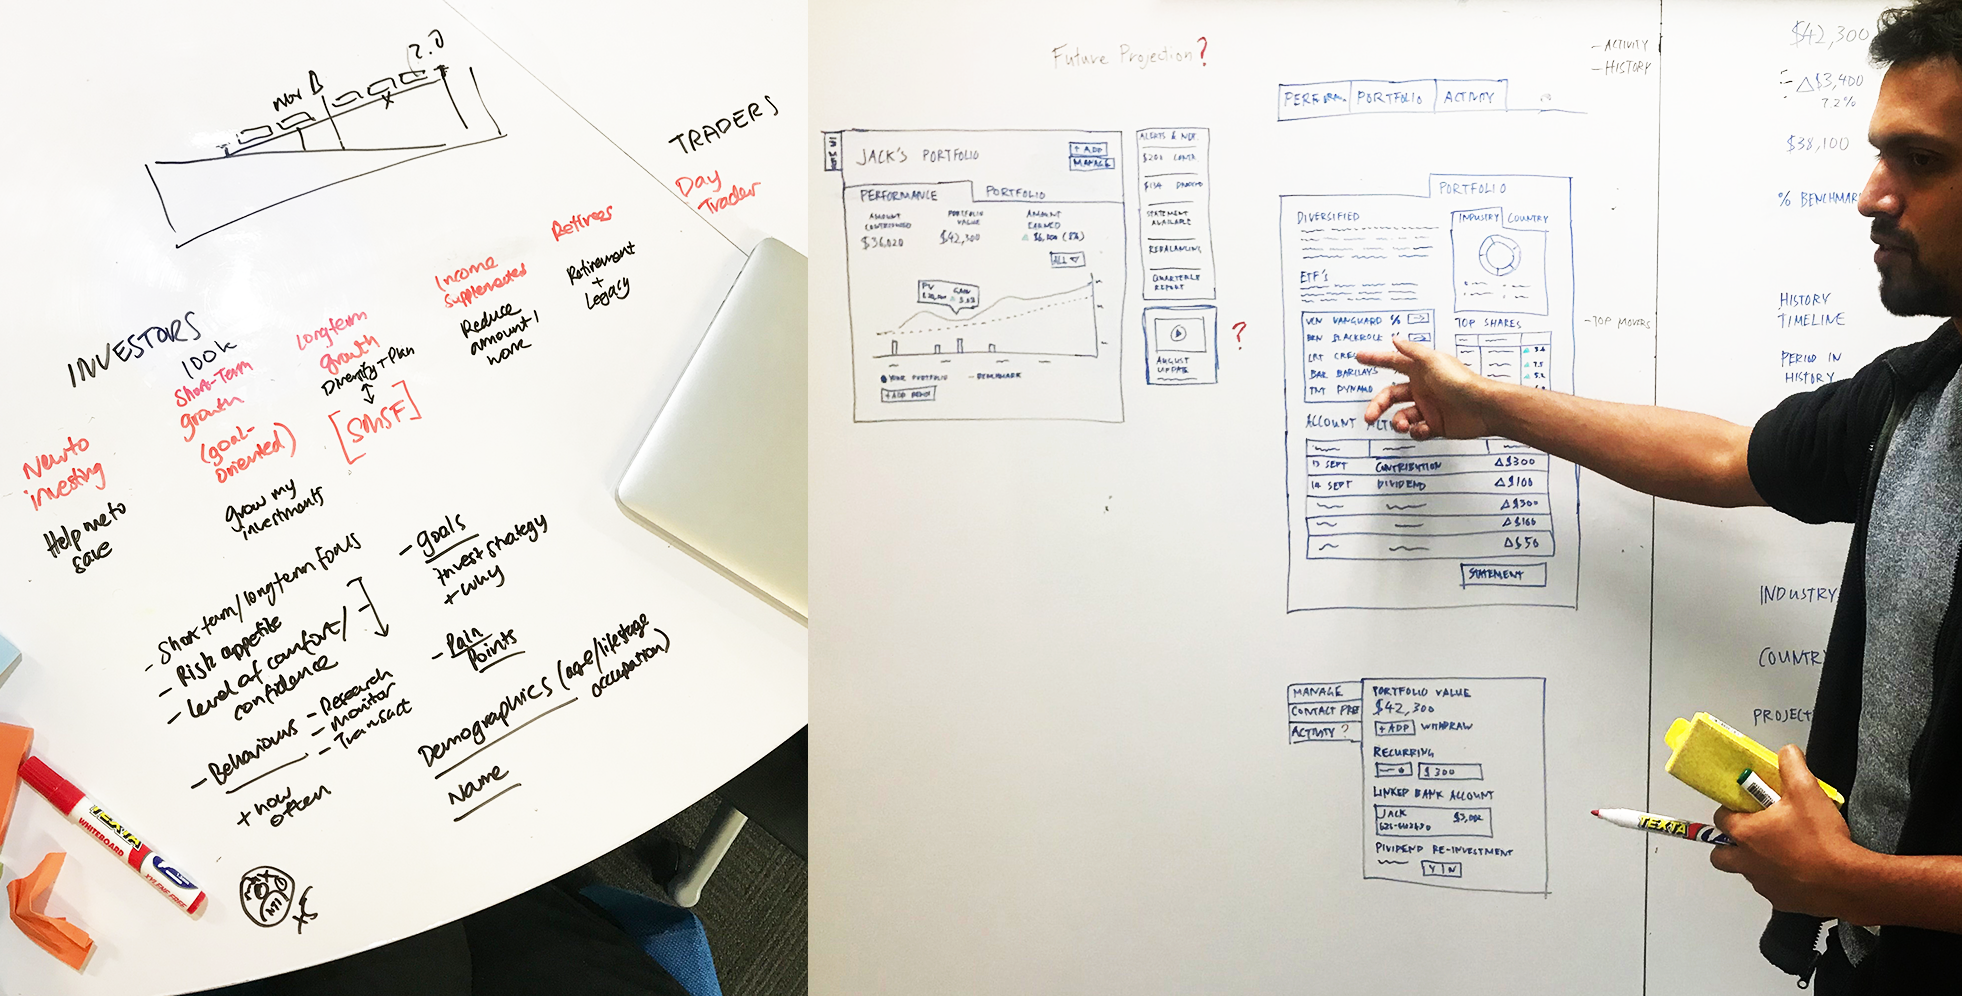 Nov
2.0
TRADERS
Day
Trader
Retirees
Retirement
+
Legacy
Income
Supplemented
Reduce
amount I
work
INVESTORS
100k
Short-Term
growth
(goal-
oriented)
grow my
investments
Longterm
growth
Diversity + Plan
[SMSF]
New to
investing
Help me to
save
- Short term/long term focus
- Risk appetite
- Level of comfort/
confidence
- Behaviours - Research
- monitor
- Transact
+ how
often
- Goals
Invest strategy
+ why
- Pain
Points
Demographics (age/lifestage
occupation)
Name
TEXTA
WHITEBOARD
XYLENE FREE
Future Projection?
JACK'S PORTFOLIO
+ ADD
MANAGE
PERFORMANCE
PORTFOLIO
AMOUNT
CONTRIBUTED
$36,020
PORTFOLIO
VALUE
$42,300
AMOUNT
EARNED
ALL
PV
GAIN
YOUR PORTFOLIO
-- BENCHMARK
+ ADD BENCH
ALERTS & NOT.
$200
$134
STATEMENT
AVAILABLE
REBALANCING
QUARTERLY
REPORT
AUGUST
UPDATE
?
PERFORM.
PORTFOLIO
ACTIVITY
- ACTIVITY
- HISTORY
PORTFOLIO
DIVERSIFIED
INDUSTRY
COUNTRY
ETF'S
VANGUARD %
BLACKROCK
BAR BARCLAYS
TNT
TOP SHARES
3.6
7.5
5.2
- TOP MOVERS
ACCOUNT
13 SEPT CONTRIBUTION △$300
14 SEPT DIVIDEND △$100
△$300
△$100
△$50
STATEMENT
MANAGE
CONTACT PRE
ACTIVITY ?
PORTFOLIO VALUE
$42,300
+ ADD WITHDRAW
RECURRING
$300
LINKED BANK ACCOUNT
JACK
DIVIDEND RE-INVESTMENT
Y | N
$42,300
△$3,400
7.2%
$38,100
% BENCHMAR
HISTORY
TIMELINE
PERIOD IN
HISTORY
INDUSTRY
COUNTR
PROJECT
TEXTA